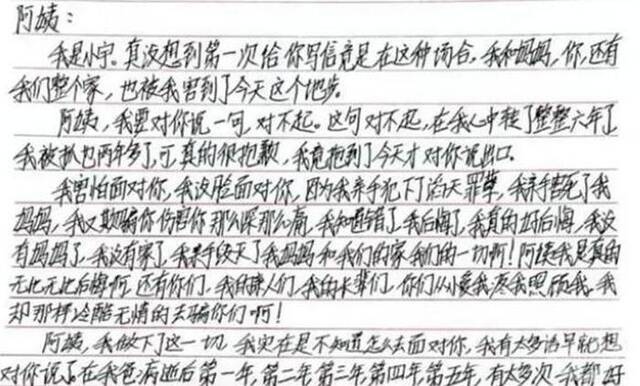 阿姨：
我是小宁。真没想到第一次给你写信竟是在这种场合。我和妈妈，你，还有
我们整个家，也被我害到了今天这个地步。
阿姨，我要对你说一句，对不起。这句对不起，在我心中转了整整六年了
我被抓也两年多了，可真的很抱歉，我竟拖到了今天才对你说出口。
我害怕面对你，我没脸面对你，因为我亲手犯下了滔天罪孽，我亲手害死了我
妈妈，我又欺骗你伤害你那么深那么痛，我知道错了，我后悔了，我真的好后悔，我没
有妈妈了，我没有家了，我亲手毁灭了我妈妈和我们的家我们的一切啊！阿姨我是真的
无比无比后悔啊，还有你们，我的亲人们，我的长辈们，你们从小爱我疼我照顾我，我
却那样冷酷无情的去骗你们啊！
阿姨，我做下了这一切，我实在是不知道怎么去面对你，我有太多话早就想
对你说了，在我爸病逝后第一年，第二年，第三年，第四年，第五年，有太多次，我都好